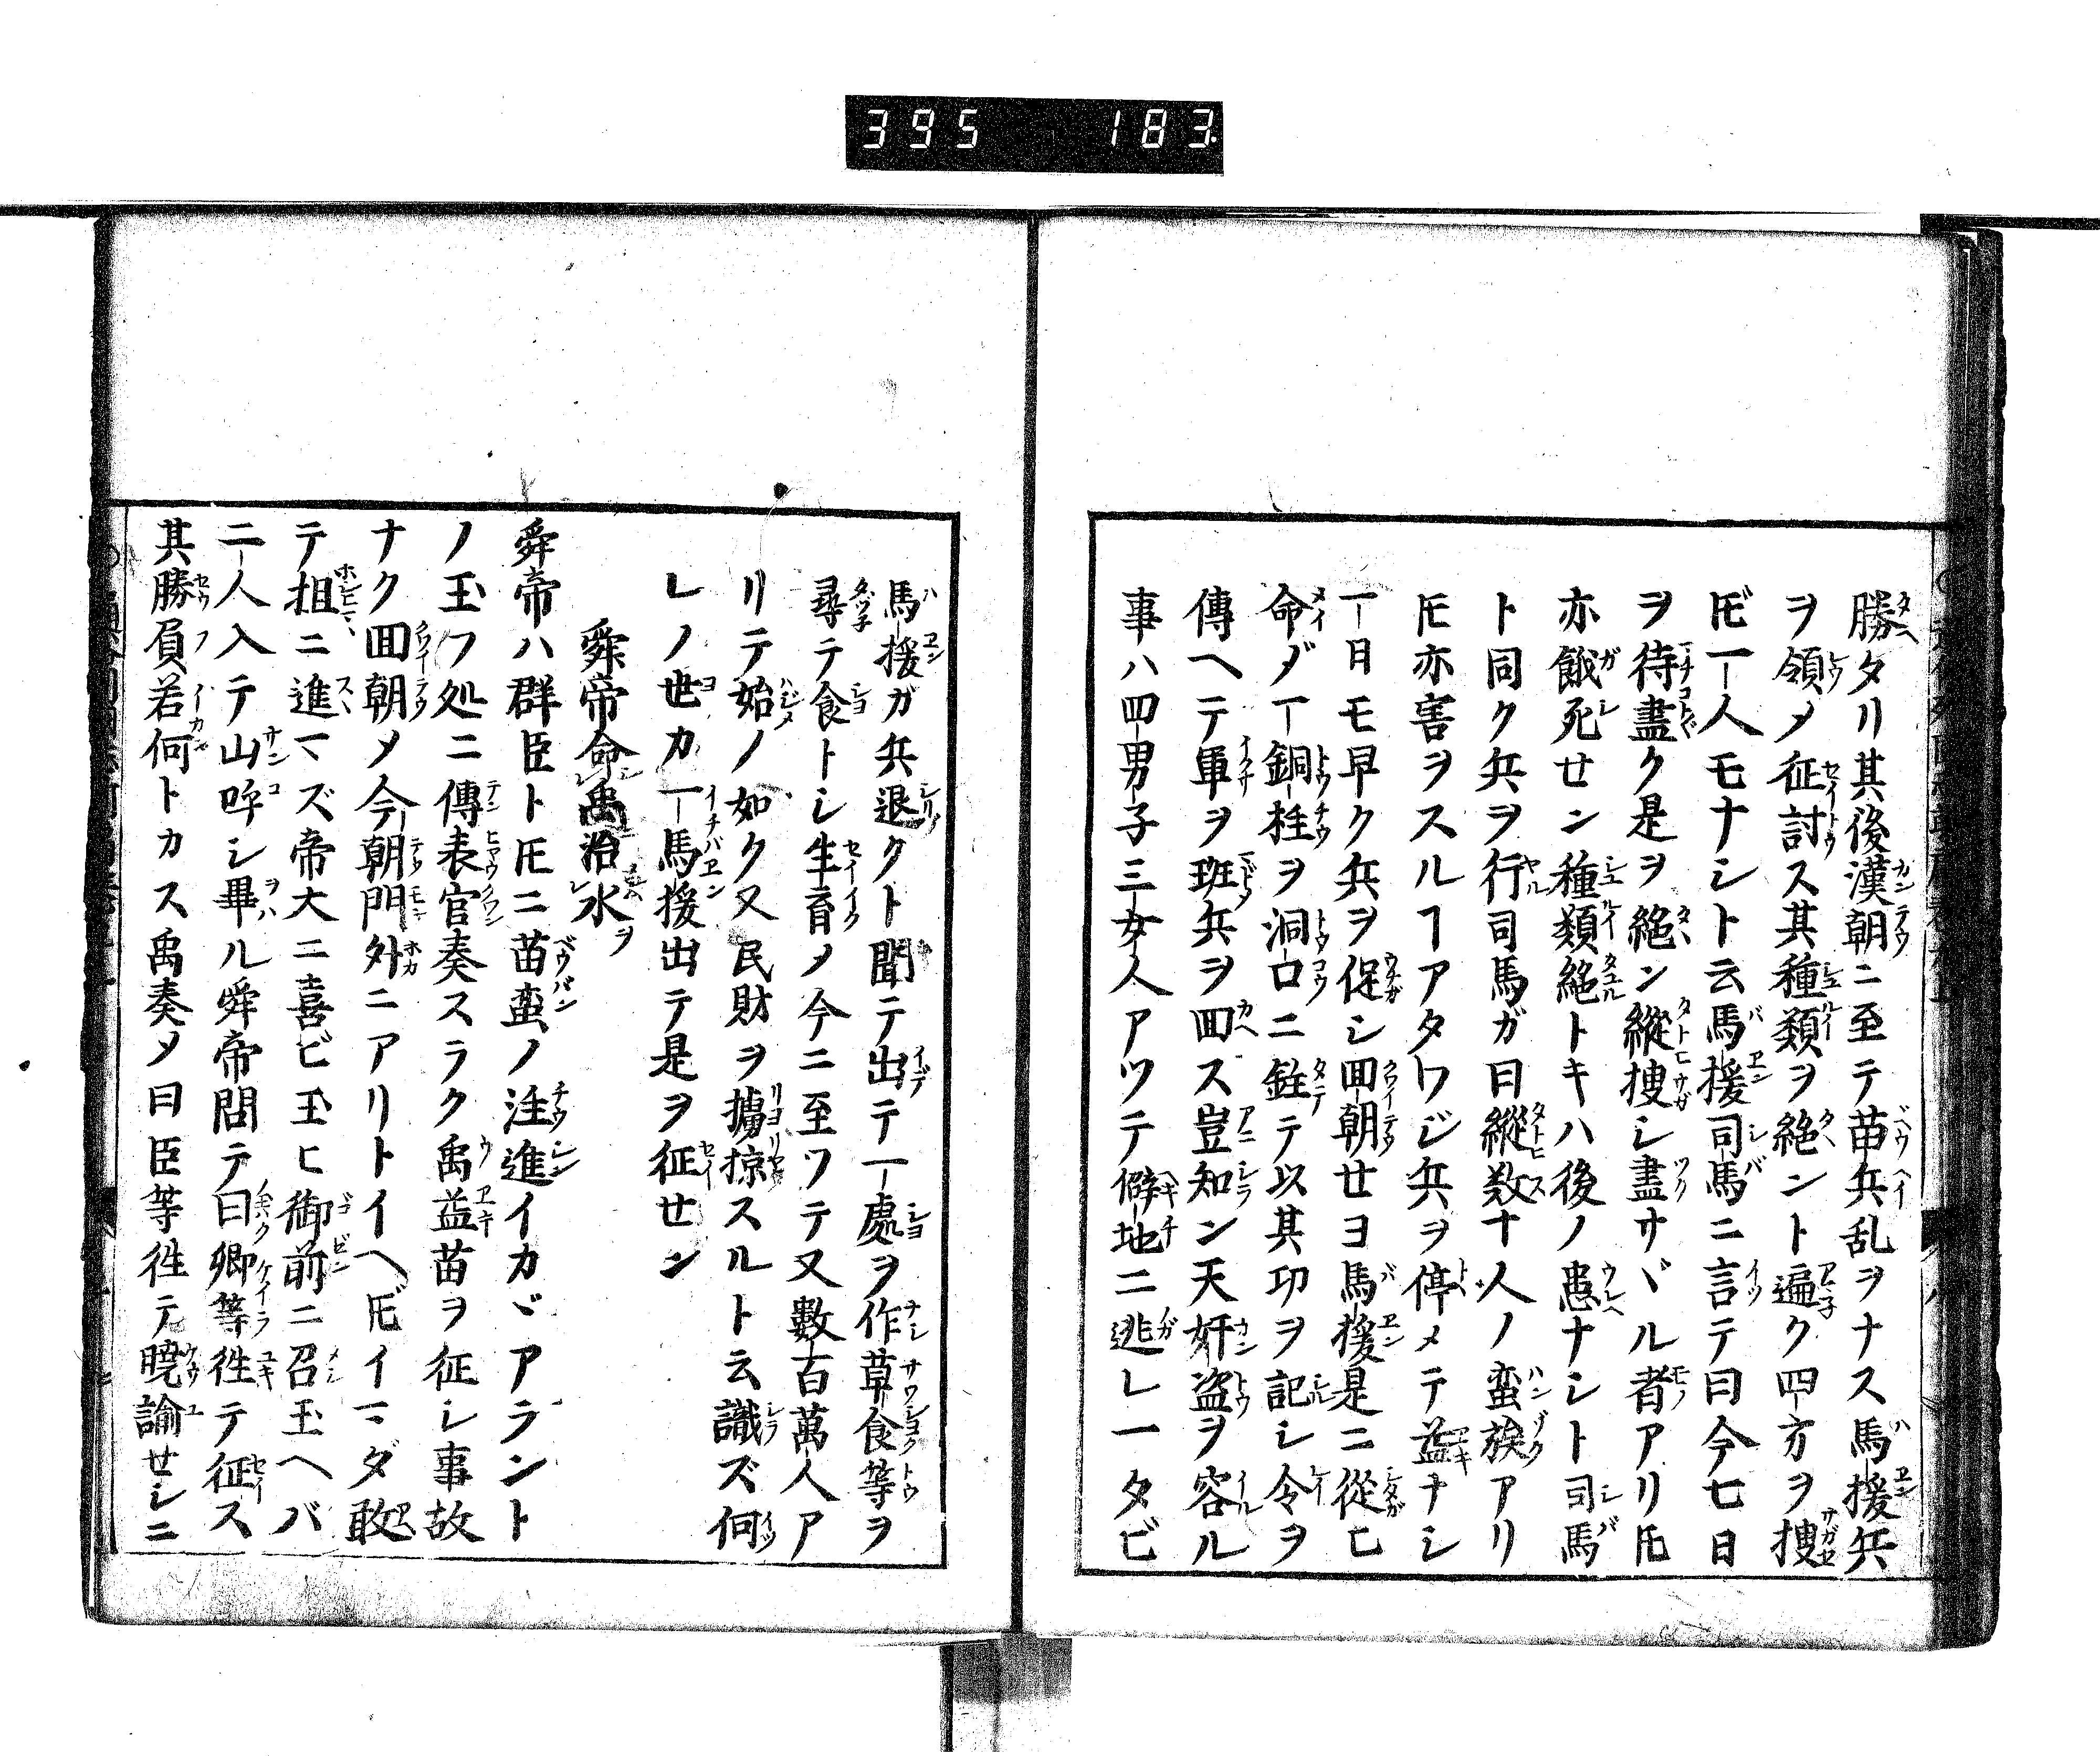 395 183
勝タリ其後漢朝ニ至テ苗兵乱ヲナス馬援兵
ヲ領メ征討ス其種類ヲ絶ント遍ク四方ヲ捜
𪜈一人モナシト云馬援司馬ニ言テ曰今七日
ヲ待盡ク是ヲ絶ン縱捜シ盡サヾル者アリ𪜈
亦餓死せン種類絶トキハ後ノ患ナシト司馬
ト同ク兵ヲ行司馬ガ曰縱数十人ノ蛮族アリ
𪜈亦害ヲスルヿアタワジ兵ヲ停メテ益ナシ
一日モ早ク兵ヲ促シ囬朝せヨ馬援是ニ從ヒ
命ダ一銅柱ヲ洞口ニ銓テ以其功ヲ記シ令ヲ
傳ヘテ軍ヲ班兵ヲ囬ス豈知ン天奸盗ヲ容ル
事ハ四男子三女人アツテ僻地ニ逃レ一タビ
馬援ガ兵退クト聞テ出テ一處ヲ作草食等ヲ
尋テ食トシ生育メ今ニ至ツテ又數百萬人ア
リテ始ノ如ク又民財ヲ擄掠スルト云識ズ何
レノ世カ一馬援出テ是ヲ征せン
舜帝命禹治水ヲ
舜帝ハ群臣ト𪜈ニ苗蛮ノ注進イカヾアラント
ノ玉フ処ニ傳表官奏スラク禹益苗ヲ征シ事故
ナク囬朝メ今朝門外ニアリトイヘ𪜈イマダ敢
テ徂ニ進マズ帝大ニ喜ビ玉ヒ御前ニ召玉ヘバ
二人入テ山呼シ畢ル舜帝問テ曰卿等徃テ征ス
其勝負若何トカス禹奏メ曰臣等徃テ曉諭せシニ